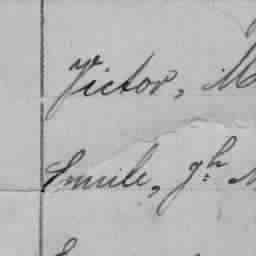 Victor, M
Emile, gh M